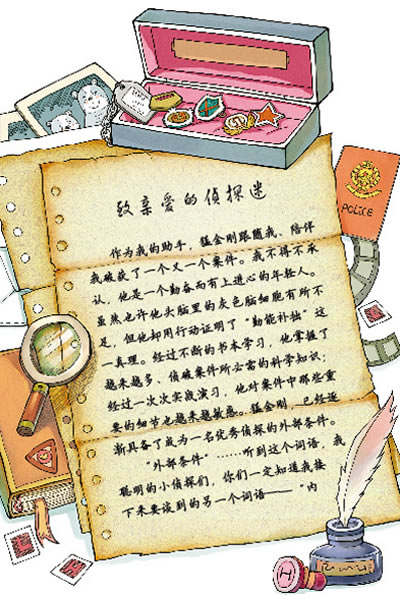 致亲爱的侦探迷
作为我的助手，猛金刚跟随我、陪伴
我破获了一个又一个案件。我不得不承
认，他是一个勤奋而有上进心的年轻人。
虽然也许他头脑里的灰色脑细胞有所不
足，但他却用行动证明了“勤能补拙”这
一真理。经过不断的书本学习，他掌握了
越来越多、侦破案件所必需的科学知识；
经过一次次实战演习，他对案件中那些重
要的细节也越来越敏感。猛金刚，已经逐
渐具备了成为一名优秀侦探的外部条件。
“外部条件”……听到这个词语，我
聪明的小侦探们，你们一定知道我接
下来要谈到的另一个词语——“内
POLiCE
H